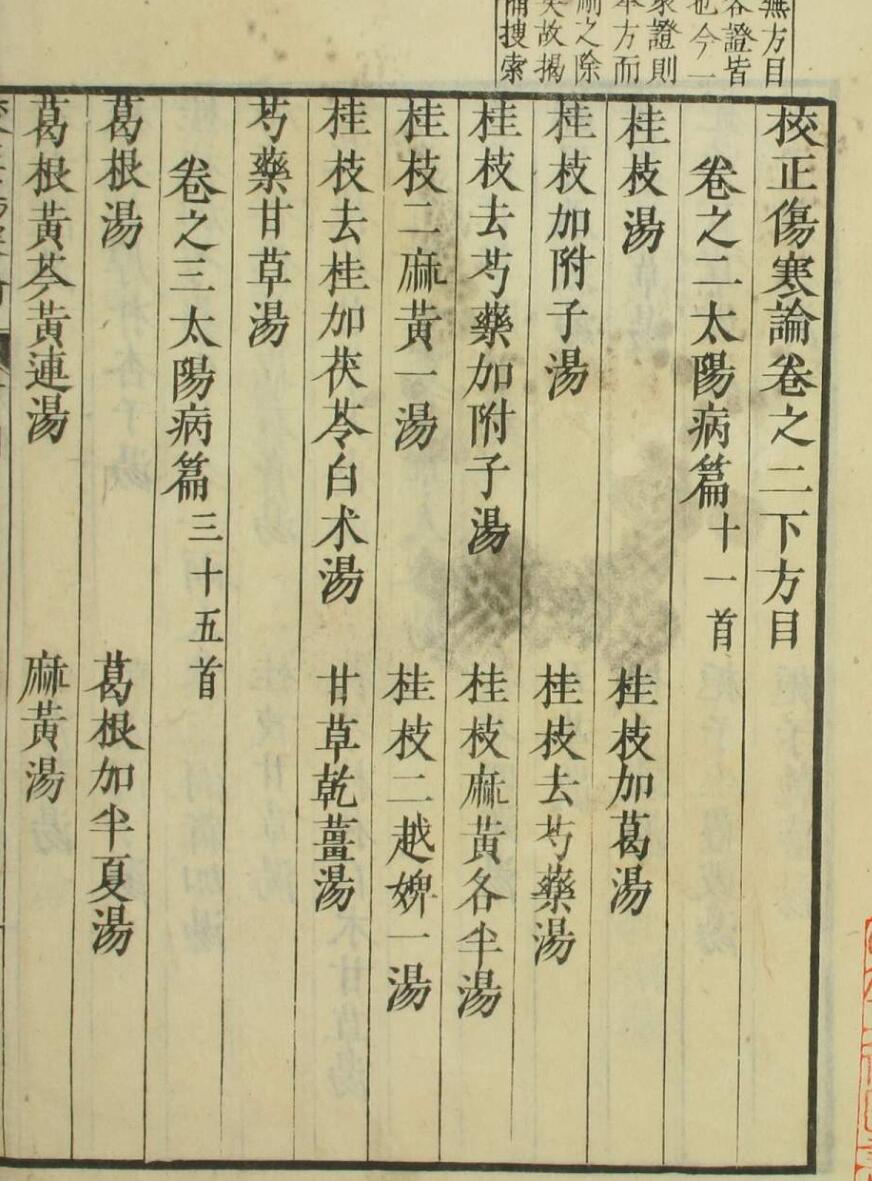 無方目
各證皆
也今一
證則
本方而
之除
失故揭
捜索
校正傷寒論卷之二下方目
卷之二太陽病篇十一首
桂枝湯　桂枝加葛湯
桂枝加附子湯　桂枝去芍藥湯
桂枝去芍藥加附子湯　桂枝麻黃各半湯
桂枝二麻黃一湯　桂枝二越婢一湯
桂枝去桂加茯苓白朮湯　甘草乾薑湯
芍藥甘草湯
卷之三太陽病篇三十五首
葛根湯　葛根加半夏湯
葛根黃芩黃連湯　麻黃湯